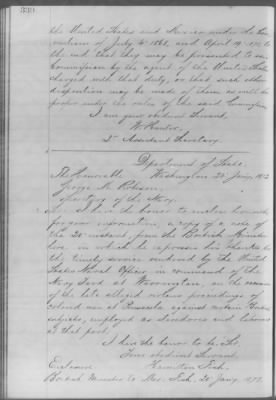 330
the United States and Mexico under the Con-
vention of July 4th 1868, and April 19. 1871 to
the end that they may be presented to said
Commission by the agent of the United States
charged with that duty, or that such other
disposition may be made of them as will be
proper under the rules of the said Commission
I am your obedient Servant,
W. Hunter.
2d Assistant Secretary.
Department of State.
The Honorable Washington 25 Jan'y, 1873
George M. Robeson.
Secretary of the Navy.
Sir: I have the honor to enclose herewith
for your information, a copy of a note of
the 20 instant from the British Minister
here, in which he expresses his thanks for
the timely service rendered by the United
States Naval Officer in command of the
Navy Yard at Warrington, on the occasion
of the late riotous proceedings of
colored men at Pensacola against certain British
subjects, employed as stevedores and laborers
at that port.
I have the honor to be, Sir,
Your obedient Servant.
Enclosure Hamilton Fish.
British Minister to Mr. Fish. 20 Jan'y, 1873.